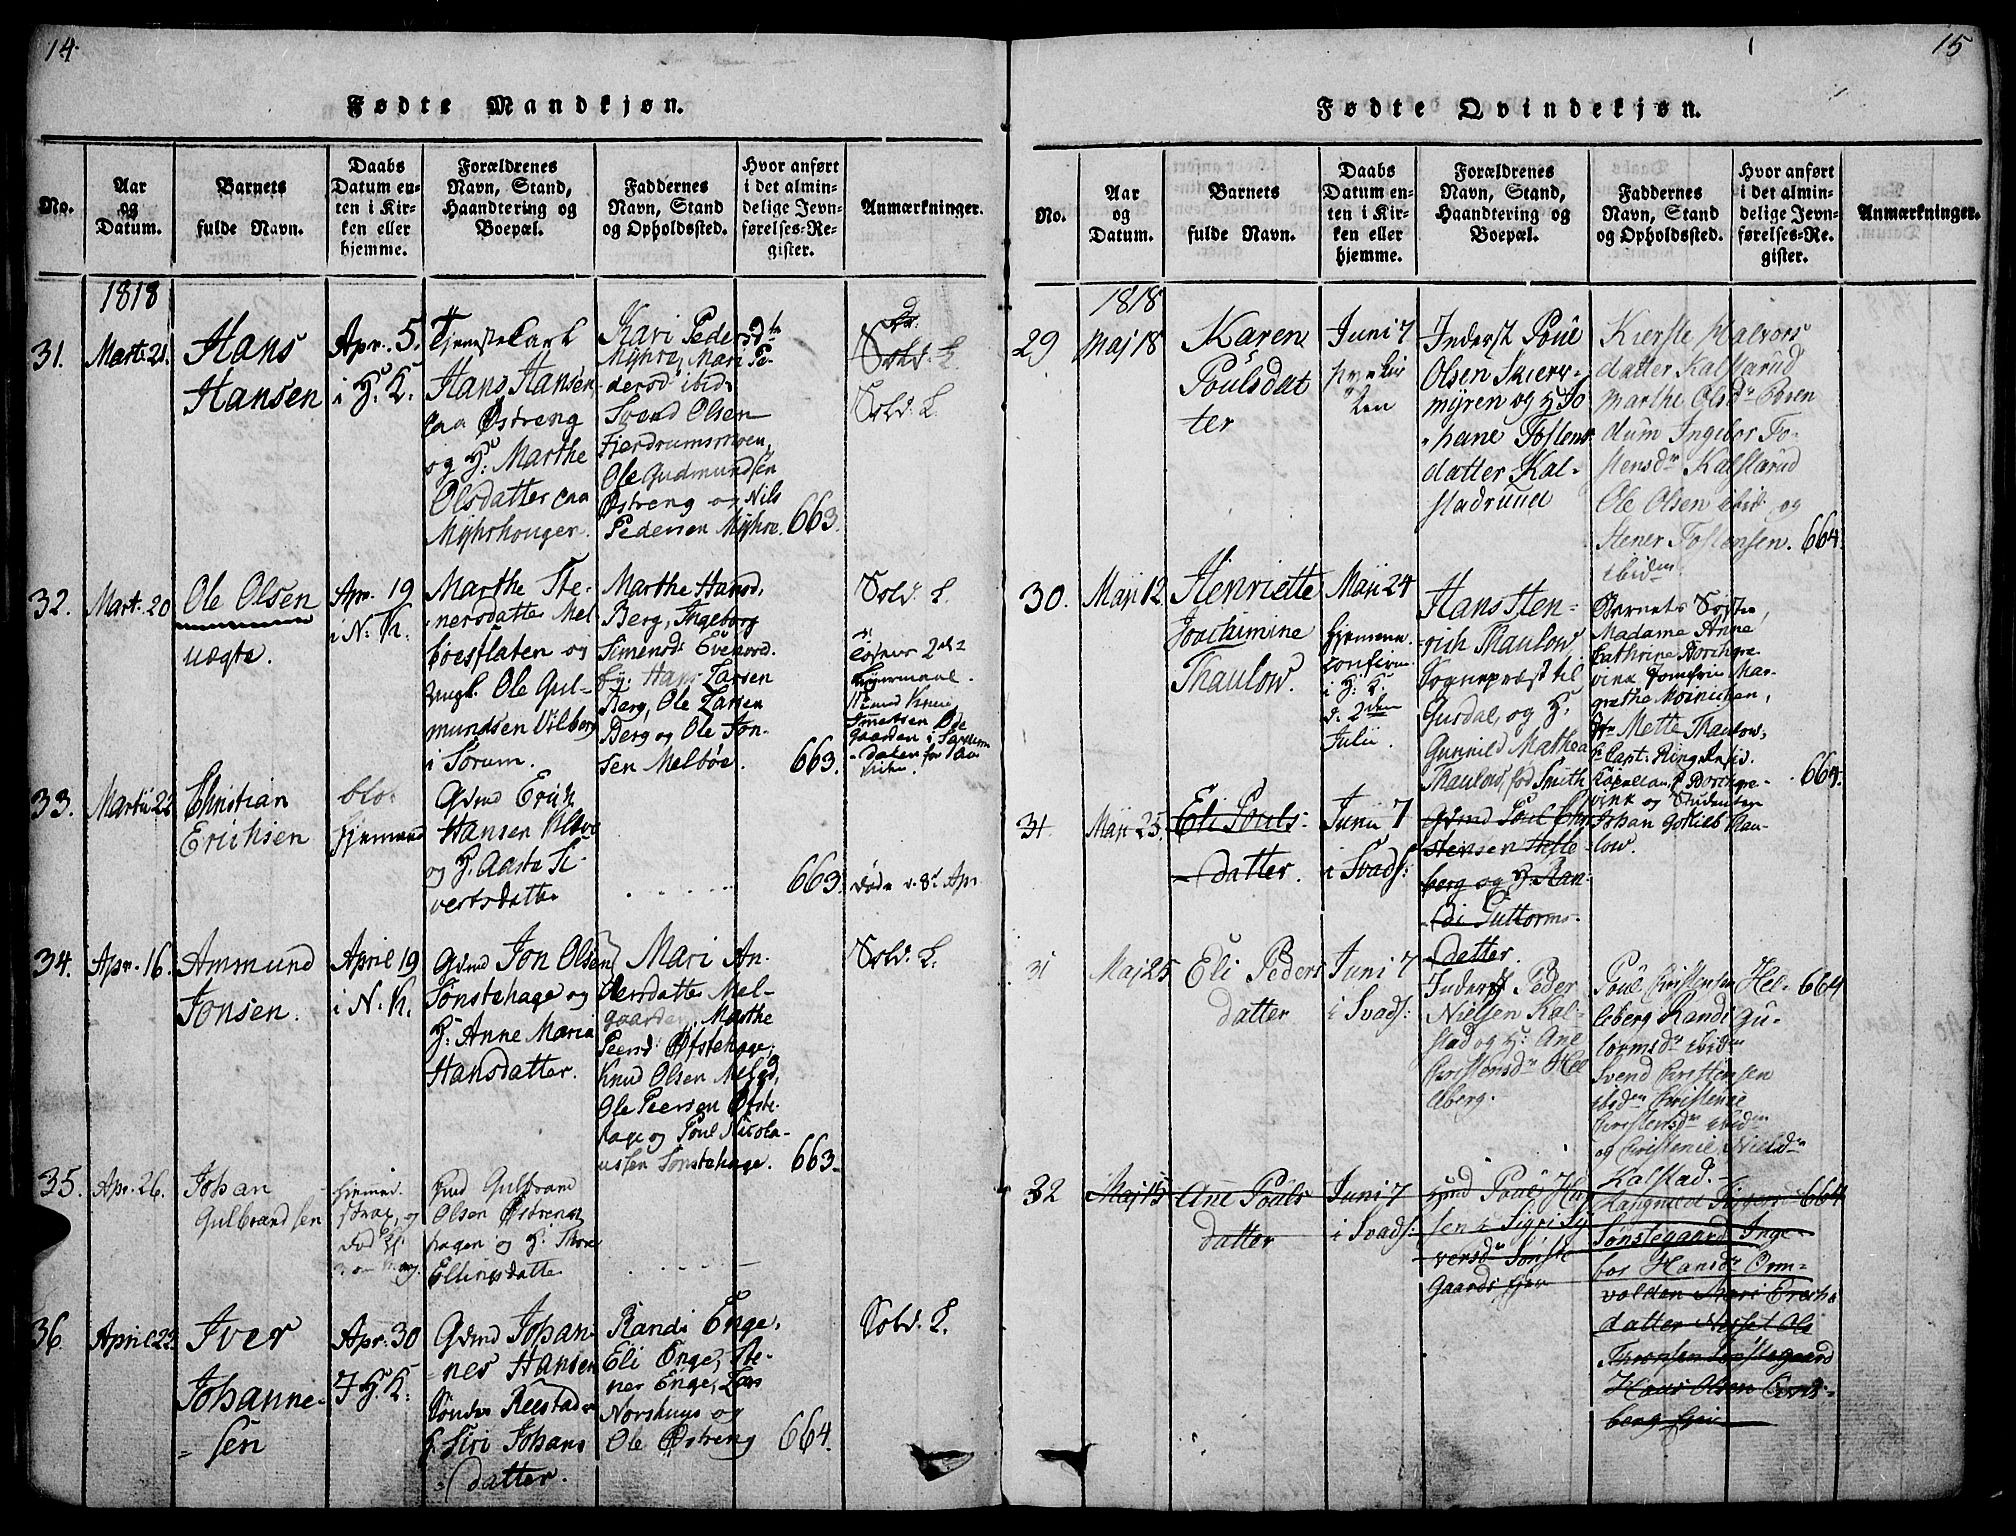 14.
Fødte Mandkjøn.
No.
Aar
og
Datum.
Barnets
fulde Navn.
Daabs
Datum en-
ten i Kir-
ken eller
hjemme.
Forældrenes
Navn, Stand,
Haandtering og
Boepæl.
Faddernes
Navn, Stand
og Opholdssted.
Hvor anført
i det almin-
delige Jevn-
førelses-Re-
gister.
Anmærkninger.
1818
31.
Marti 21.
Hans
Hansen
Apr. 5.
i H. K.
Tjenstekarl
Hans Hansen
paa Østreng
og H: Marthe
Olsdatter paa
Myhrhouger.
Kari Peders
Myhre, Mari Pe-
dersd ibid:
Svend Olsen
Fierdrumsmoen,
Ole Gudmundsen
Østreng og Nils
Pedersen Myhre.
663.
Sold. L.
Sold. L.
32.
Mart. 20
Ole Olsen
uægte.
Apr. 19
i N. K.
Marthe Ste-
nersdatter Mel
boesflaten og
Ungk. Ole Gul-
mundsen Vilberg
i Sørum.
Marthe Hansd.
Berg, Ingeborg
Simensd: Evenrd.
by. Hans Larsen
Berg, Ole Larsen
Berg og Ole Jon-
sen Melbøe.
663.
Sold. L.
33.
Martii 22
Christian
Erichsen
hjemmed
Gdmd Erich
Hansen
og H. Aaste Si-
vertsdatter
663.
døde d. 8d Apr.
34.
Apr. 16.
Ammund
Jonsen.
April 19
i N. K.
Gdmd Jon Olsen
Sønstehage og
H: Anne Maria
Hansdatter.
Mari An-
dersdatte Mel-
gaarden, Marthe
Peersd: Østehage,
Knud Olsen Melgd,
Ole Peersen Øste-
hage og Poul Nicola-
ussen Sønstehage.
663.
Sold. L.
35.
Apr. 26.
Johan
Gulbrandsen
hjemmed.
strax, og
Hmd Gulbrand
Olsen Østreng
hagen og H: Thore
Ellingsdatte
36.
April 23.
Iver
Johanne-
sen
Apr. 30
I H. K.
Gdmd Johan-
nes Hansen
Sønder Reestad
H. Siri Johans
datter.
Randi Enge,
Eli Enge, Ste-
ner Enge, Lars
Norshuus og
Ole Østreng
664.
Sold. L.
15
Fødte Qvindekjøn.
No.
Aar
og
Datum.
Barnets
fulde Navn.
Daabs
Datum en-
ten i Kir-
ken eller
hjemme.
Forældrenes
Navn, Stand,
Haandtering og
Boepæl.
Faddernes
Navn, Stand
og Opholdssted.
Hvor anført
i det almin-
delige Jevn-
førelses-Re-
gister.
Anmærkninger.
1818
29
Maj 18
Karen
Poulsdat
ter
Juni 7
Inderst Poul
Olsen Skierp-
myren og H Jo
hane Tostens
datter Kal-
stadruud
Kierste Halvors
datter Kalstarud
Marthe Olsdr Børen
dum Ingebor To-
stensdr Kalstarud
Ole Olsen ibid: og
Stener Tostensen.
ibidm
664.
30.
Maji 12
Henriette
Joachimine
Thaulow.
Maji 24
hjemme.
confirm.
i H: K.
d. 2den
Julii.
Hans Hen-
rich Thaulow,
Sognepræst til
Hurdal, og H:
Gunnild Mathea
Thaulow, fød Smith
Barnets Søster,
Madame Anne
Cathrine Borchgre-
vink Jomfru Mar-
grethe Moinichen,
Mette Thaulow,
Hr Capt. Ring
Capellan Borchgre-
vink og Studenten
Johan Gotlieb Thau-
low.
664.
31
Maji 25.
Eli Pouls-
datter.
Junii 7
i Svads:
Gdmd Poul Chri
stensen Helle-
berg og H: Ran-
di Guttorms-
datter.
31
Maj 25
Eli Peders
datter
Juni 7
i Svads:
Inderst Peder
Nielsen Kal-
stad og H: Ane
Christensdr Hel
leberg.
Poul Christensen Hel-
leberg Randi Gu-
tormsdr ibidm
Svend Christensen
ibidm Christense
Christensdr ibidm
og Christenie Nielsdr
Kalstad.
664
32
Maj 15
Ane Pouls
datter
Juni 7
i Svads:
Hmd Poul Han
sen og Sigri Sy
versdr Sønste
Gaards Ejer
Sønstegaard Inge-
bor Hansdr Orm-
volden Mari Erichs
datter Nessel Ole
Thronsen Sønstegaard
Hans Olsen
berg Ejer
664